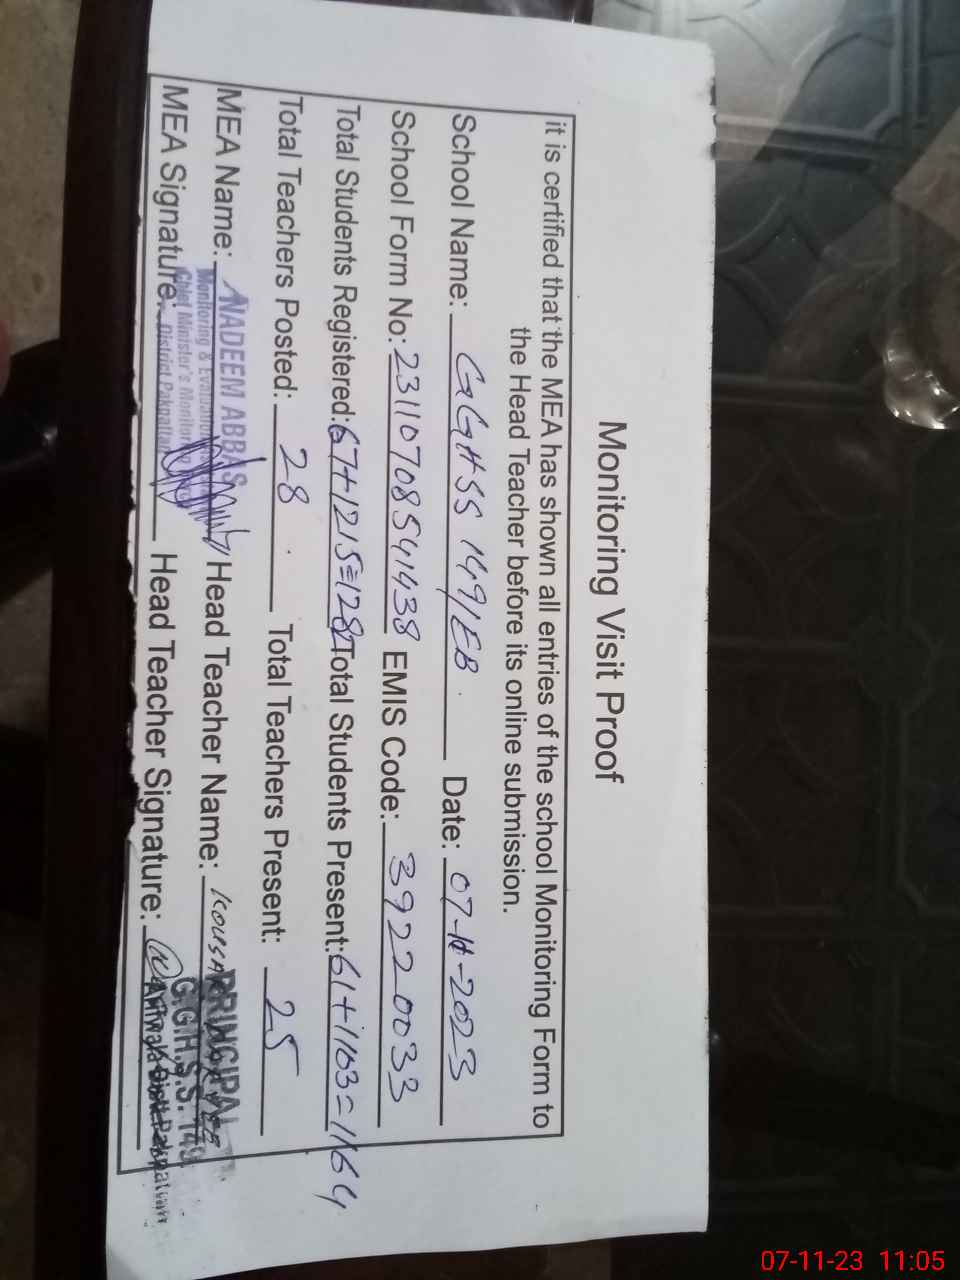 Monitoring Visit Proof
it is certified that the MEA has shown all entries of the school Monitoring Form to
the Head Teacher before its online submission.
School Name: GGHSS 149/EB Date: 07-11-2023
School Form No: 23110708541438 EMIS Code: 39220033
Total Students Registered: 67+1215=1282 Total Students Present: 61+1103=1164
Total Teachers Posted: 28 Total Teachers Present: 25
MEA Name: NADEEM ABBAS Head Teacher Name: KOUSAR
Monitoring & Evaluation
MEA Signature: Head Teacher Signature:
Chief Minister's Monitoring
District Pakpattan
PRINCIPAL
G.G.H.S.S. 149
07-11-23 11:05